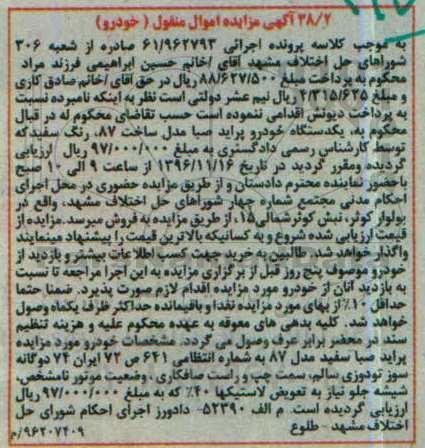 ۳۸/۲ آگهی مزایده اموال منقول ( خودرو)
به موجب کلاسه پرونده اجرائی ۶۱/۹۶۲۷۹۳ صادره از شعبه ۳۰۶
شوراهای حل اختلاف مشهد آقای /خانم حسین ابراهیمی فرزند مراد
محکوم به پرداخت مبلغ ۸۸/۶۲۷/۵۰۰ ریال در حق آقای/خانم صادق کاری
و مبلغ ۴/۳۱۵/۶۲۵ ریال نیم عشر دولتی است نظر به اینکه نامبرده نسبت
به پرداخت دیونش اقدامی ننموده است حسب تقاضای محکوم له در قبال
محکوم به، یکدستگاه خودرو پراید صبا مدل ساخت ۸۷، رنگ سفیدکه
توسط کارشناس رسمی دادگستری به مبلغ ۹۷/۰۰۰/۰۰۰ ریال ارزیابی
گردیده ومقرر گردید در تاریخ ۱۳۹۶/۱۱/۱۶ از ساعت ۹ الی ۱۰ صبح
باحضور نماینده محترم دادستان و از طریق مزایده حضوری در محل اجرای
احکام مدنی مجتمع شماره چهار شوراهای حل اختلاف مشهد، واقع در
بولوار کوثر، نبش کوثرشمالی۱۵، از طریق مزایده به فروش میرسد.مزایده از
قیمت ارزیابی شده شروع و به کسانیکه بالاترین قیمت را پیشنهاد مینمایند
واگذار خواهد شد. طالبین به خرید جهت کسب اطلاعات بیشتر و بازدید از
خودرو موصوف پنج روز قبل از برگزاری مزایده به این اجرا مراجعه تا نسبت
به بازدید آنان از خودرو مورد مزایده اقدام لازم صورت پذیرد. ضمنا حتما
حداقل ۱۰٪ از بهای مورد مزایده نقدا و باقیمانده حداکثر ظرف یکماه وصول
خواهد شد. کلیه بدهی های معوقه به عهده محکوم علیه و هزینه تنظیم
سند در محضر برابر عرف وصول می گردد. مشخصات خودرو مورد مزایده
پراید صبا سفید مدل ۸۷ به شماره انتظامی ۶۴۱ ص ۷۲ ایران ۷۴ دوگانه
سوز تودوزی سالم، سمت چپ و راست صافکاری ، وضعیت موتور نامشخص،
شیشه جلو نیاز به تعویض لاستیکها ۴۰٪ که به مبلغ ۹۷/۰۰۰/۰۰۰ ریال
ارزیابی گردیده است. م الف ۵۲۳۹۰- دادورز اجرای احکام شورای حل
اختلاف مشهد - طلوع
۹۶۲۰۷۴۰۹/م